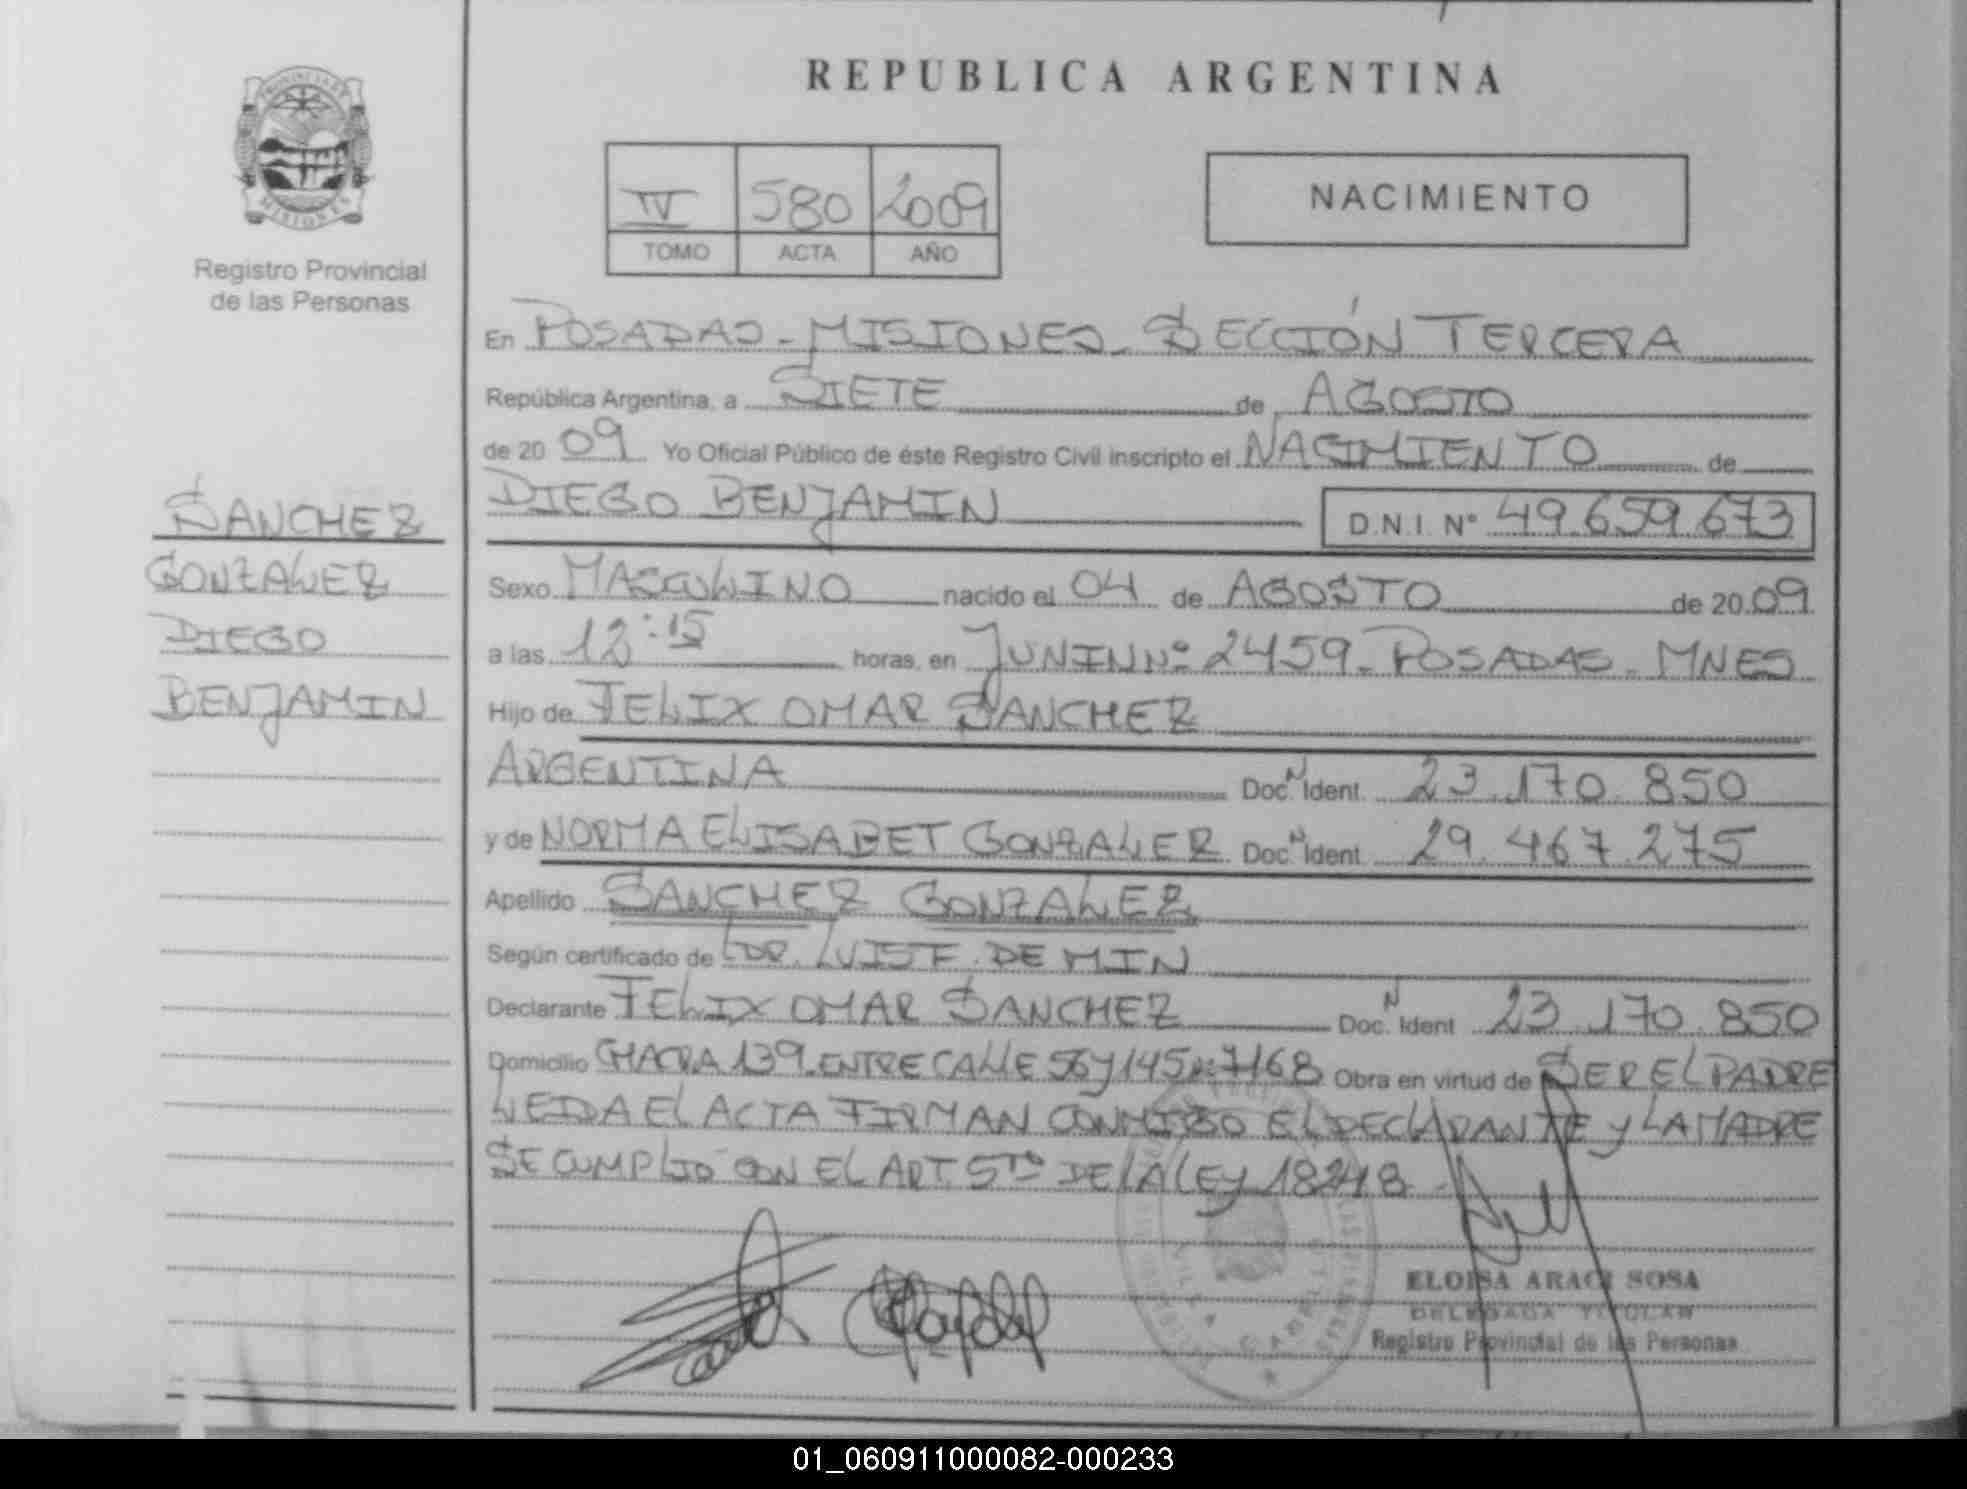 REPUBLICA ARGENTINA
PROVINCIA DE MISIONES
Registro Provincial
de las Personas
IV 580 2009
TOMO ACTA AÑO
NACIMIENTO
En POSADAS - MISIONES - SECCIÓN TERCERA
República Argentina, a SIETE de AGOSTO
de 2009 Yo Oficial Público de éste Registro Civil inscripto el NACIMIENTO de
DIEGO BENJAMIN D.N.I. Nº 49.659.673
SANCHEZ
GONZALEZ
DIEGO
BENJAMIN
Sexo MASCULINO nacido el 04 de AGOSTO de 2009
a las 12:15 horas, en JUNIN Nº 2459 - POSADAS - MNES
Hijo de FELIX OMAR SANCHEZ
ARGENTINA Doc. N Ident. 23.170.850
y de NORMA ELISABET GONZALEZ Doc. N Ident. 29.467.275
Apellido SANCHEZ GONZALEZ
Según certificado de DR. LUIS F. DE MIN
Declarante FELIX OMAR SANCHEZ Doc. N Ident 23.170.850
Domicilio CHACRA 139 ENTRE CALLE 56 y 145 Nº 7168 Obra en virtud de SER EL PADRE
LEIDA EL ACTA FIRMAN CONMIGO EL DECLARANTE y LA MADRE
SE CUMPLIO CON EL ART. 5TO DE LA LEY 18248
ELOISA ARACI SOSA
DELEGADA TITULAR
Registro Provincial de las Personas
01_060911000082-000233